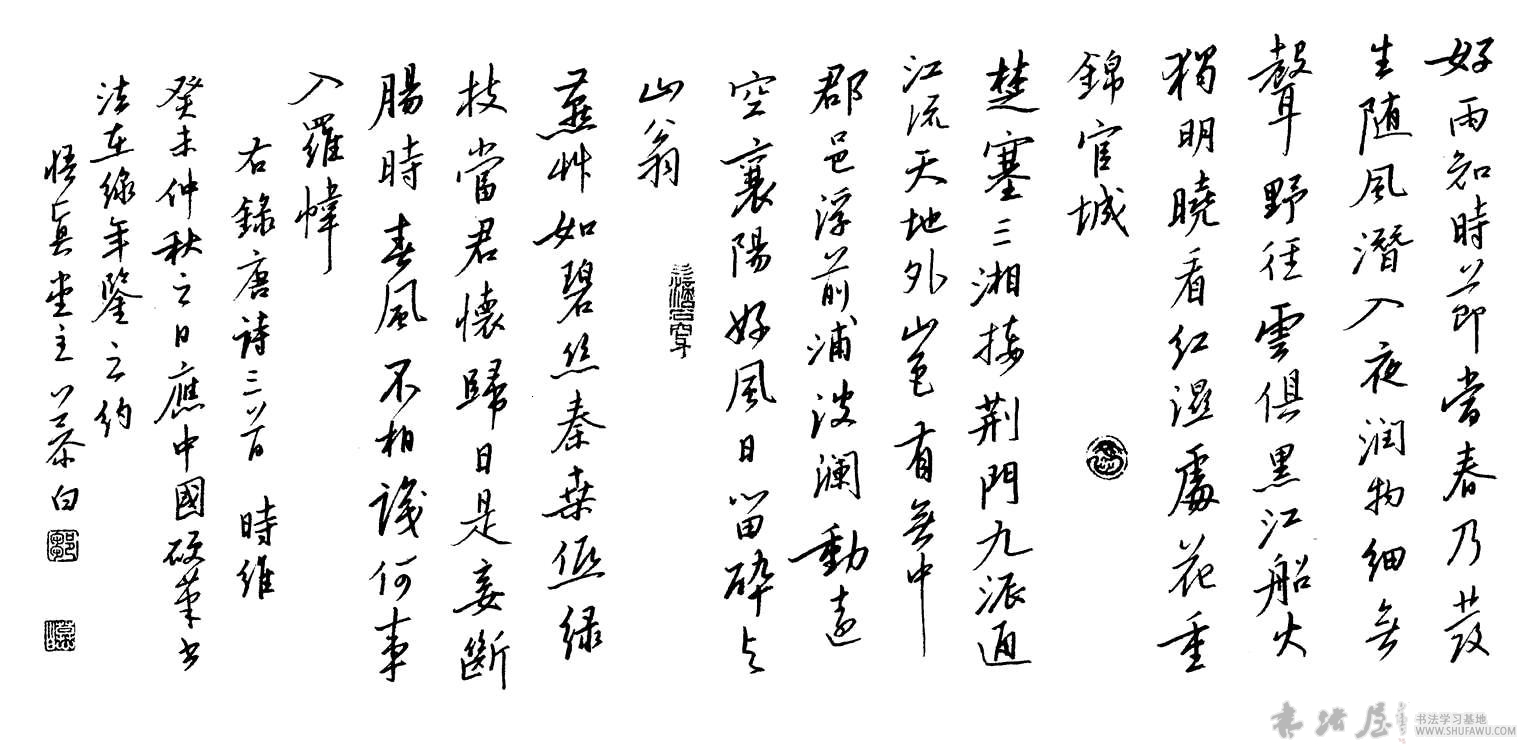 好雨知時節當春乃發
生随風潛入夜润物细無
聲野徑雲俱黑江船火
獨明曉看红濕處花重
錦官城
楚塞三湘接荆門九派通
江流天地外山色有無中
郡邑浮前浦波澜動遠
空襄陽好風日留醉与
山翁
燕艸如碧丝秦桑低绿
枝當君懷歸日是妾斷
腸時春風不相識何事
入羅幃
右錄唐詩三首 時維
癸未仲秋之日應中國硬筆书
法在線年鑒之约
悟真堂主慕白
书法屋
书法学习基地
WWW.SHUFAWU.COM